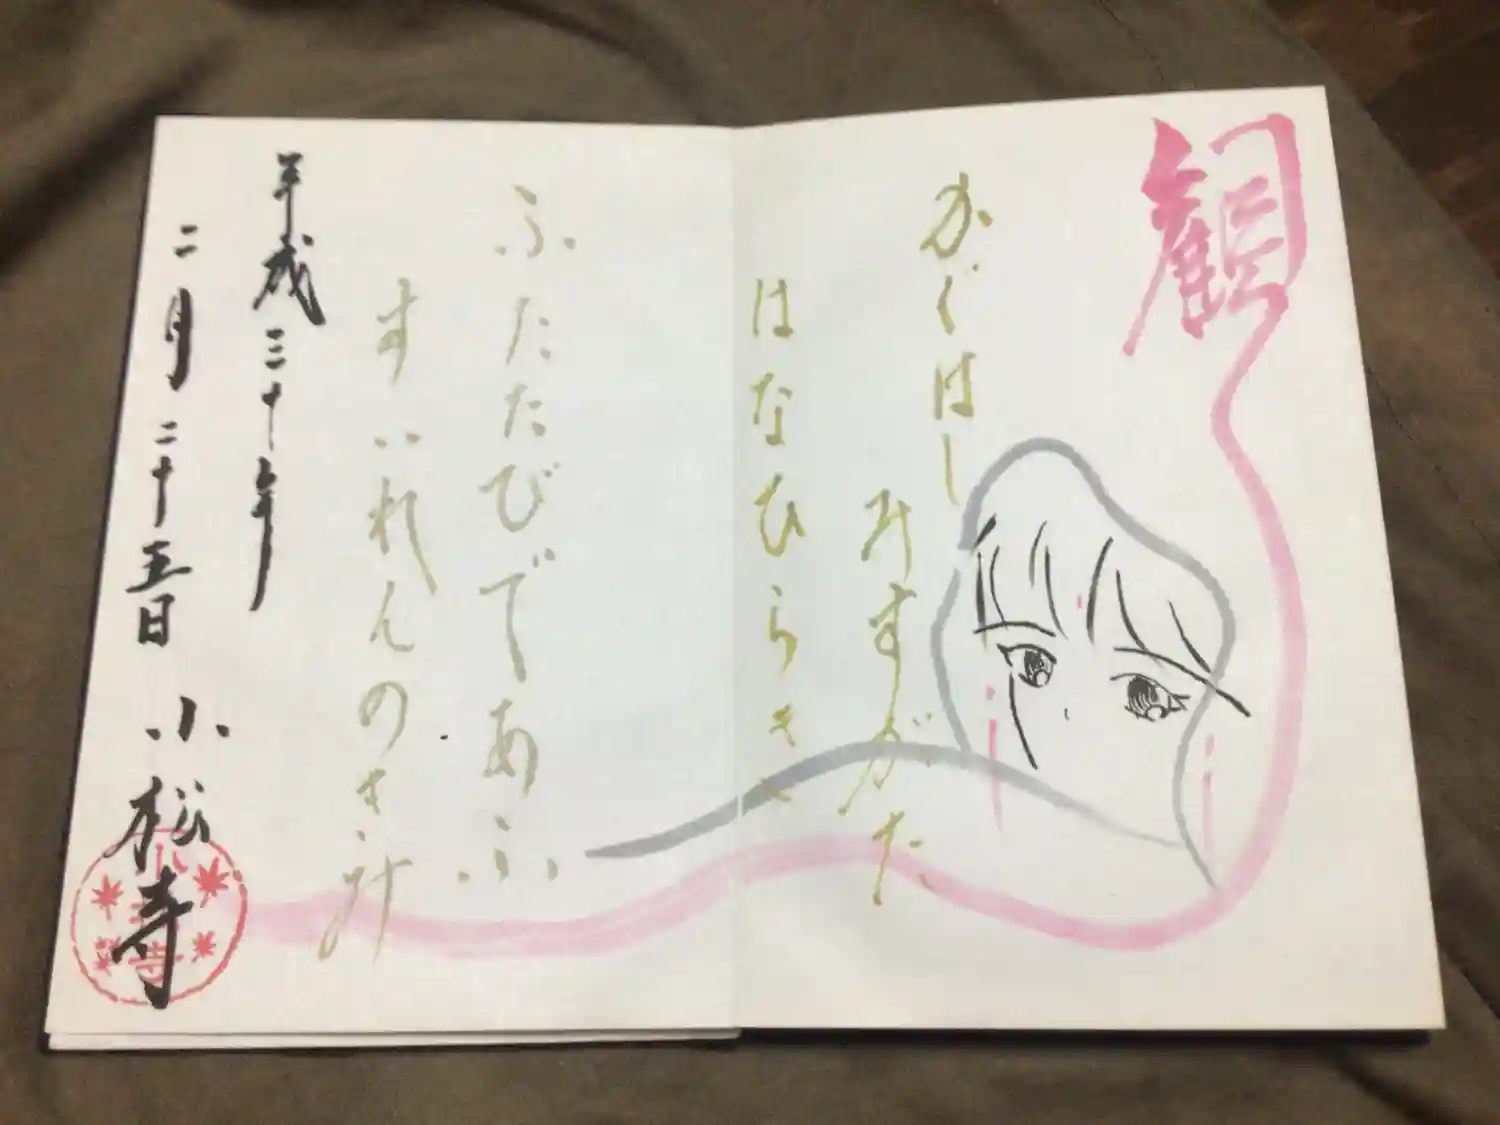 観
かぐはし
みすがた
はなひらき
ふたたびであふ
すいれんのき汁
平成三十年
二月二十五日 小松寺